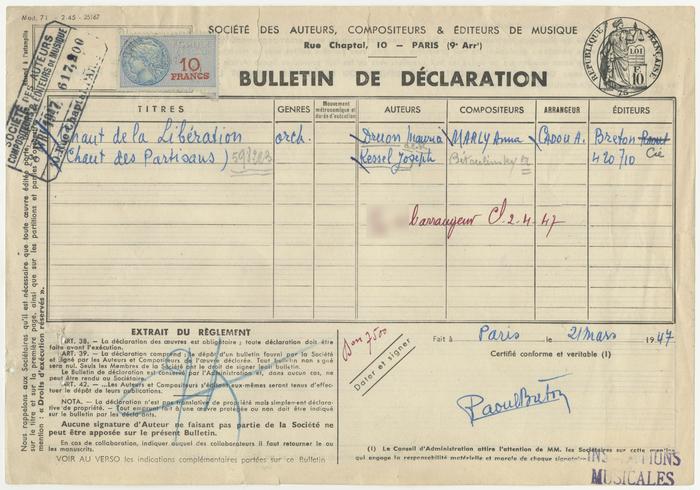 Mod. 71 - 2-45 - 25167
SOCIÉTÉ DES AUTEURS, COMPOSITEURS & ÉDITEURS DE MUSIQUE
Rue Chaptal, 10 — PARIS (9e Arrt)
BULLETIN DE DÉCLARATION
10
FRANCS
RÉPUBLIQUE FRANÇAISE
LOI
10
75
SOCIÉTÉ DES AUTEURS
COMPOSITEURS & ÉDITEURS DE MUSIQUE
617,900
10, Rue Chaptal, PARIS
TITRES
GENRES
Mouvement métronomique et durée d'exécution
AUTEURS
COMPOSITEURS
ARRANGEUR
ÉDITEURS
Chant de la Libération orch. Druon Maurice MARLY Anna CADOU A. Breton Raoul
(Chant des Partisans) 591203 Kessel Joseph Bétoulinsky 420710 Cie
arrangeur Cl. 2-4-47
EXTRAIT DU RÈGLEMENT
ART. 38. — La déclaration des œuvres est obligatoire ; toute déclaration doit être
faite avant l'exécution.
ART. 39. — La déclaration comporte le dépôt d'un bulletin fourni par la Société
signé par les Auteurs et Compositeurs de l'œuvre déclarée. Tout bulletin non signé
sera nul. Seuls les Membres de la Société ont le droit de signer ledit bulletin.
Le Bulletin de déclaration est conservé par l'Administration et, dans aucun cas, ne
peut être rendu au Sociétaire.
ART. 42. — Les Auteurs et Compositeurs s'obligent eux-mêmes seront tenus d'effectuer
le dépôt de leurs publications.
NOTA. — La déclaration n'est pas translative de propriété mais simplement déclarative
de propriété. — Tout emprunt fait à une œuvre protégée ou non doit être indiqué
sur le bulletin par les déclarants.
Aucune signature d'Auteur ne faisant pas partie de la Société ne
peut être apposée sur le présent Bulletin.
En cas de collaboration, indiquer auquel des collaborateurs il faut retourner le ou
les manuscrits.
VOIR AU VERSO les indications complémentaires portées sur ce Bulletin
Bon 7500
Dater et signer
Fait à Paris le 21 mars 1947
Certifié conforme et véritable (1)
Raoul Breton
(1) Le Conseil d'Administration attire l'attention de MM. les Sociétaires sur cette
qui engage la responsabilité matérielle et morale de chaque signataire
MUSICALES
Nous rappelons aux Sociétaires qu'il est nécessaire que toute œuvre éditée porte
au titre et sur la première page, ainsi que sur les partitions et parties
mention : « Droits d'exécution réservés ».